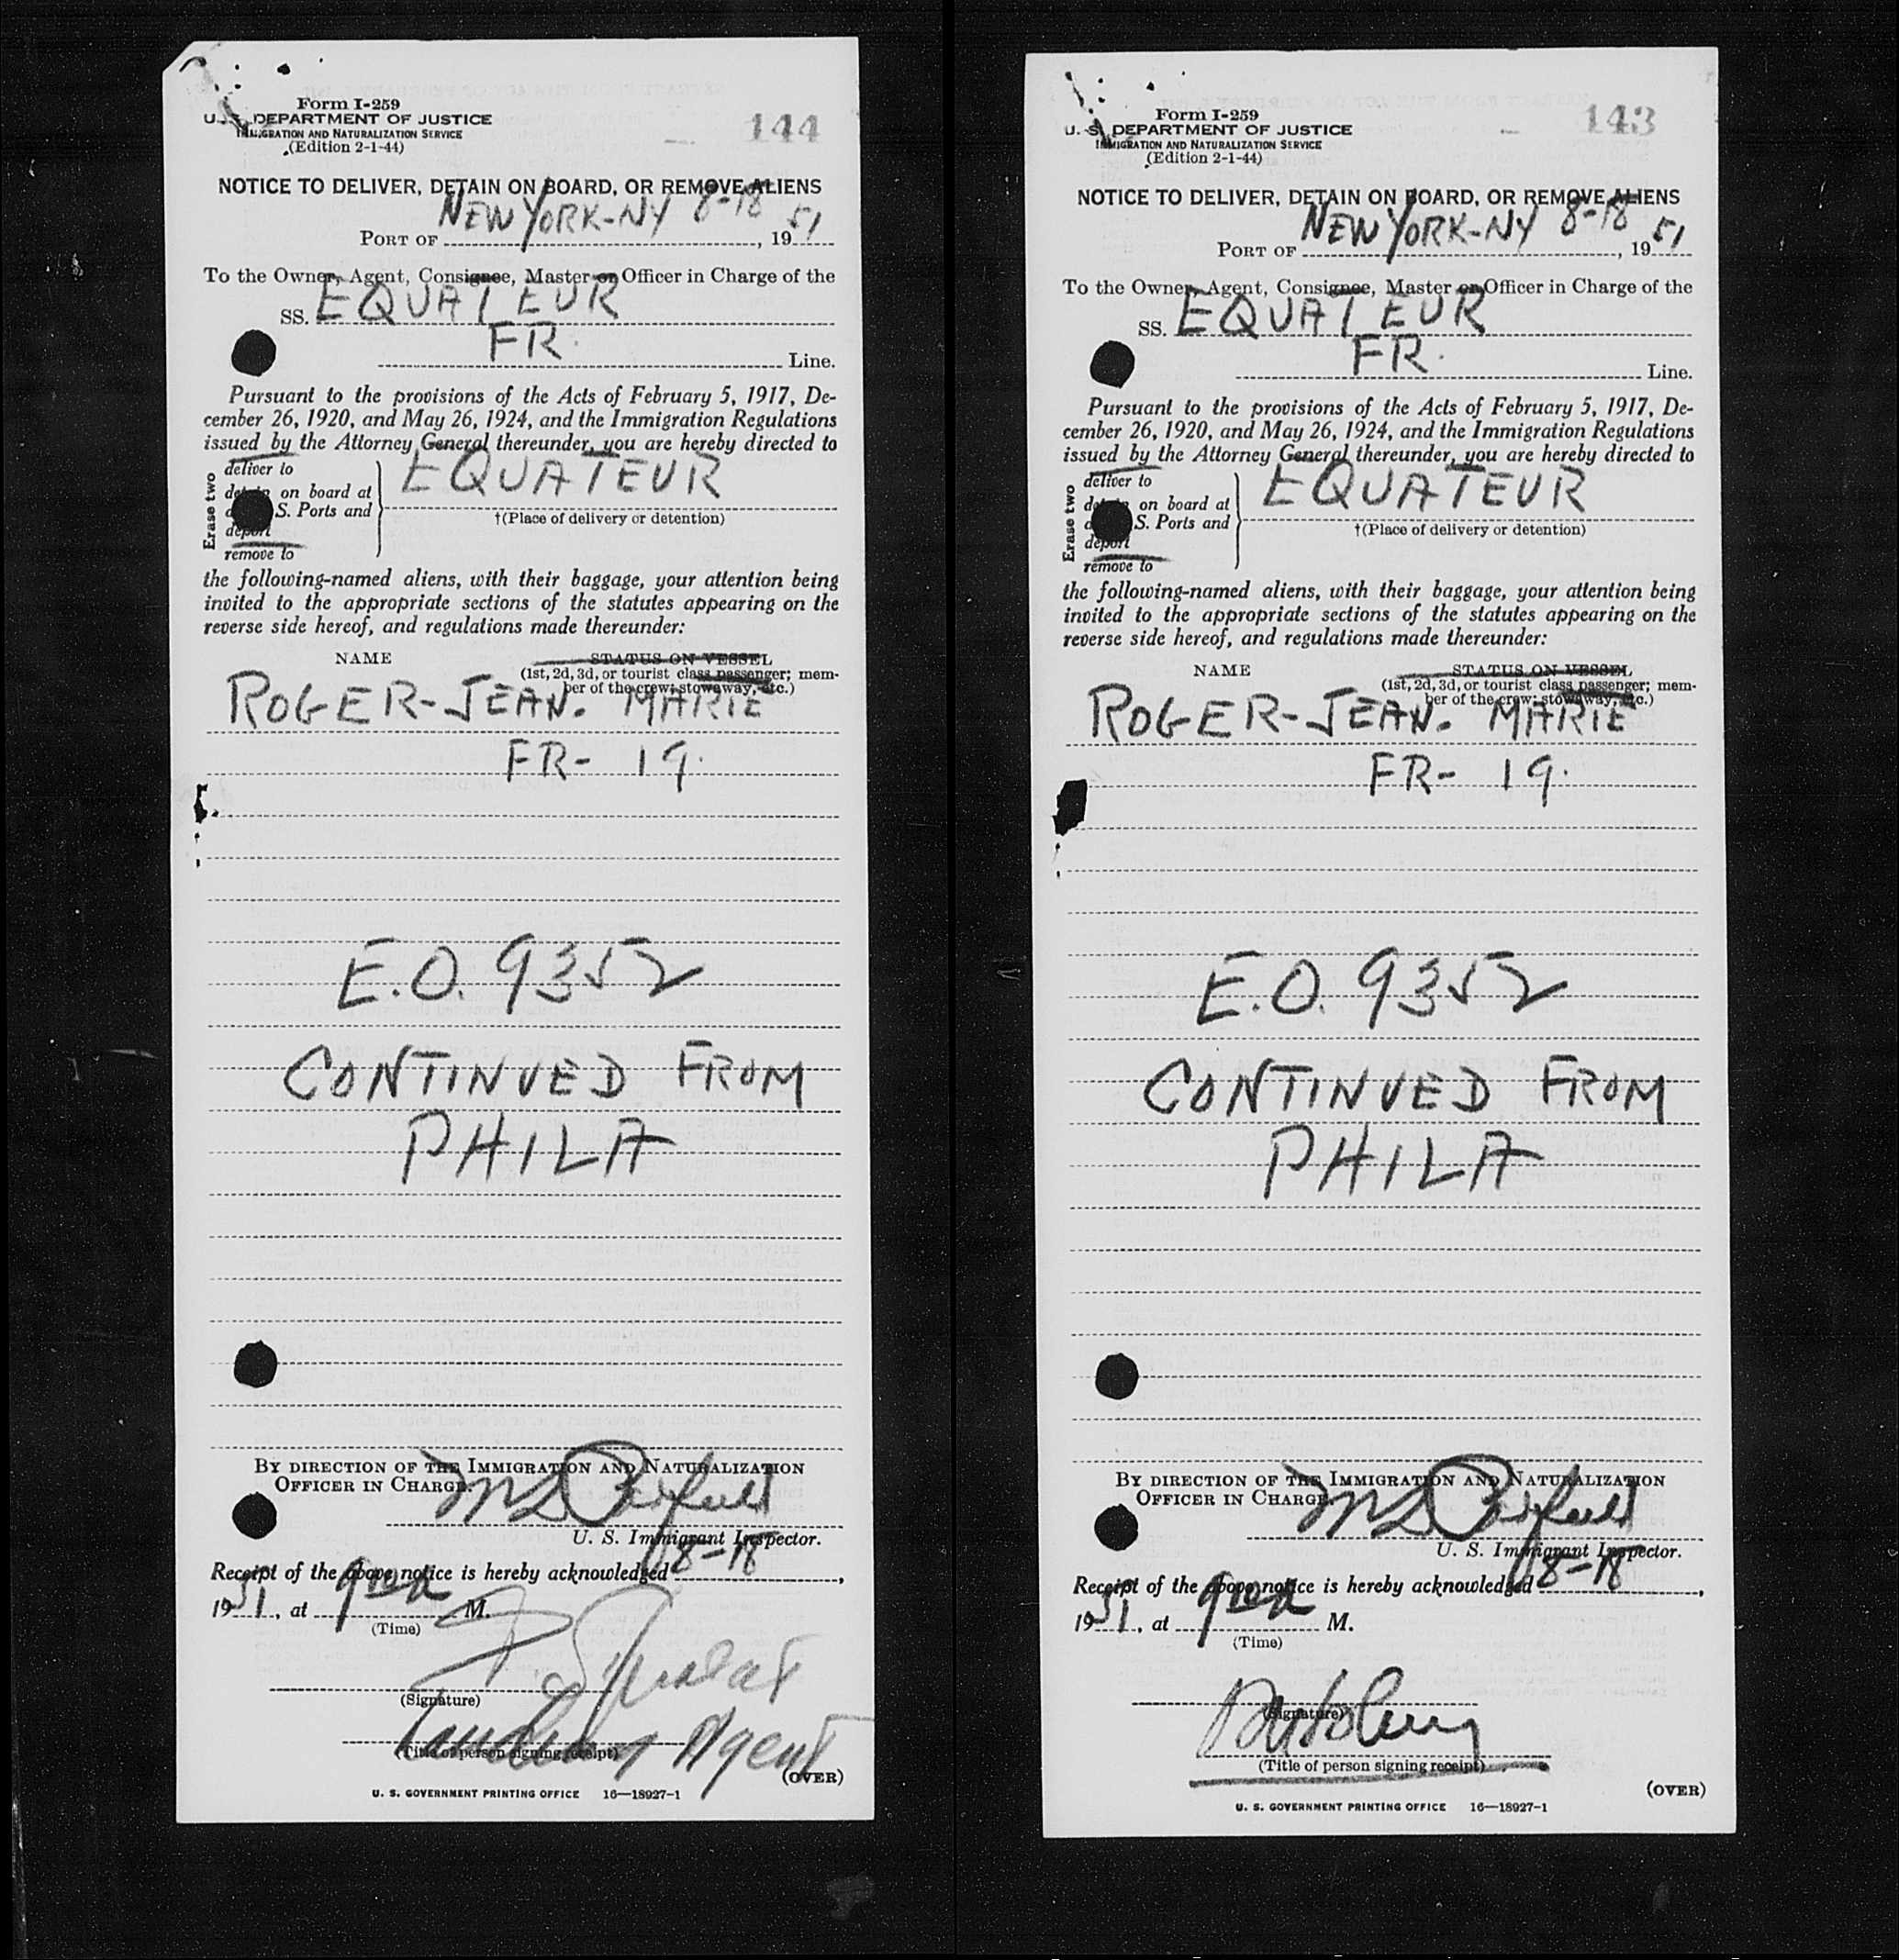 Form I-259
U. S. DEPARTMENT OF JUSTICE
IMMIGRATION AND NATURALIZATION SERVICE
(Edition 2-1-44)
144
NOTICE TO DELIVER, DETAIN ON BOARD, OR REMOVE ALIENS
PORT OF NEW YORK-NY 8-18, 1951
To the Owner, Agent, Consignee, Master or Officer in Charge of the
SS. EQUATEUR
FR. Line.
Pursuant to the provisions of the Acts of February 5, 1917, De-
cember 26, 1920, and May 26, 1924, and the Immigration Regulations
issued by the Attorney General thereunder, you are hereby directed to
Erase two
deliver to
on board at
S. Ports and
deport
remove to
EQUATEUR
†(Place of delivery or detention)
the following-named aliens, with their baggage, your attention being
invited to the appropriate sections of the statutes appearing on the
reverse side hereof, and regulations made thereunder:
NAME STATUS ON VESSEL
(1st, 2d, 3d, or tourist class passenger; mem-
ber of the crew; stowaway, etc.)
ROGER-JEAN. MARIE
FR- 19.
E.O. 9352
CONTINUED FROM
PHILA
BY DIRECTION OF THE IMMIGRATION AND NATURALIZATION
OFFICER IN CHARGE.
U. S. Immigrant Inspector.
Receipt of the above notice is hereby acknowledged 8-18,
1951, at M.
(Time)
(Signature)
Agent
(Title of person signing receipt)
(OVER)
U. S. GOVERNMENT PRINTING OFFICE 16—18927-1
Form I-259
U. S. DEPARTMENT OF JUSTICE
IMMIGRATION AND NATURALIZATION SERVICE
(Edition 2-1-44)
143
NOTICE TO DELIVER, DETAIN ON BOARD, OR REMOVE ALIENS
PORT OF NEW YORK-NY 8-18, 1951
To the Owner, Agent, Consignee, Master or Officer in Charge of the
SS. EQUATEUR
FR. Line.
Pursuant to the provisions of the Acts of February 5, 1917, De-
cember 26, 1920, and May 26, 1924, and the Immigration Regulations
issued by the Attorney General thereunder, you are hereby directed to
Erase two
deliver to
on board at
S. Ports and
deport
remove to
EQUATEUR
†(Place of delivery or detention)
the following-named aliens, with their baggage, your attention being
invited to the appropriate sections of the statutes appearing on the
reverse side hereof, and regulations made thereunder:
NAME STATUS ON VESSEL
(1st, 2d, 3d, or tourist class passenger; mem-
ber of the crew; stowaway, etc.)
ROGER-JEAN. MARIE
FR- 19.
E.O. 9352
CONTINUED FROM
PHILA
BY DIRECTION OF THE IMMIGRATION AND NATURALIZATION
OFFICER IN CHARGE.
U. S. Immigrant Inspector.
Receipt of the above notice is hereby acknowledged 8-18,
1951, at M.
(Time)
(Signature)
(Title of person signing receipt)
(OVER)
U. S. GOVERNMENT PRINTING OFFICE 16—18927-1